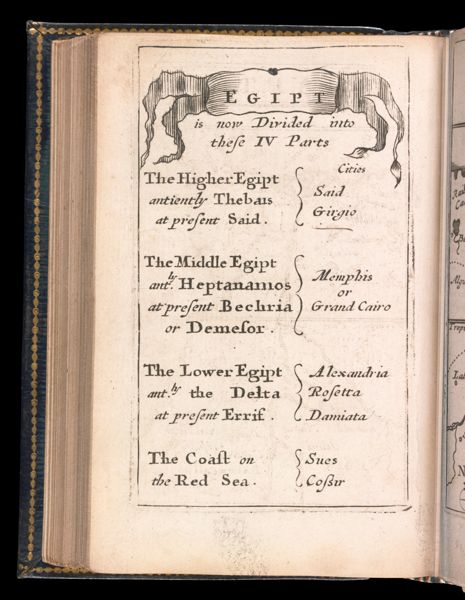 EGIPT
is now Divided into
theſe IV Parts
Cities
The Higher Egipt
antiently Thebais
at preſent Said.
Said
Girgio
The Middle Egipt
ant.ly Heptanamos
at preſent Bechria
or Demeſor.
Memphis
or
Grand Cairo
The Lower Egipt
ant.ly the Delta
at preſent Errif.
Alexandria
Rosetta
Damiata
The Coaſt on
the Red Sea.
Sues
Coßir